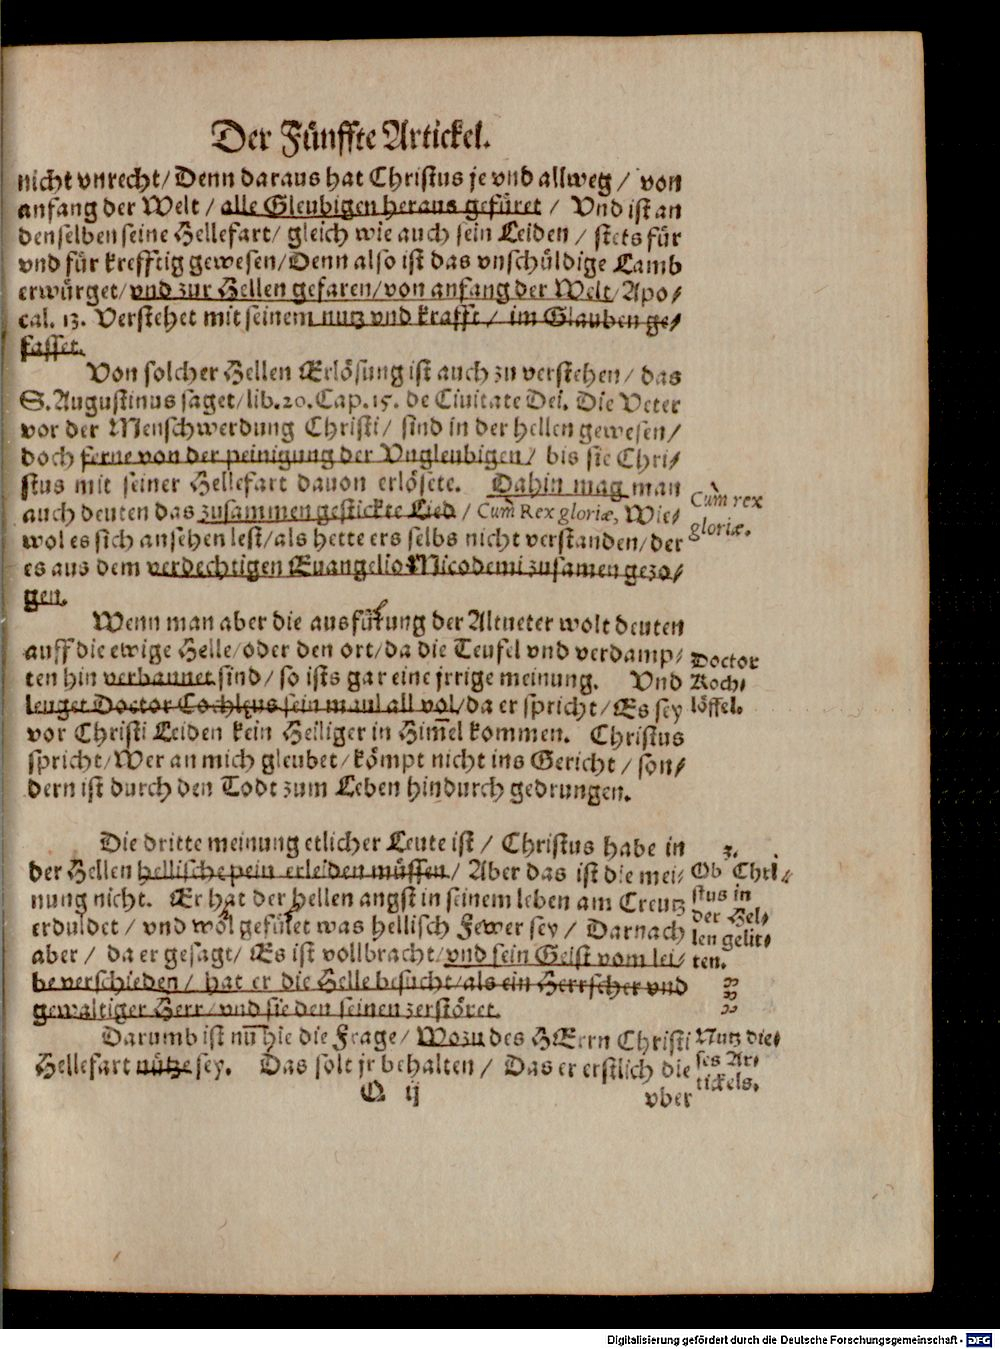 Der Fünffte Artickel.
nicht vnrecht/ Denn daraus hat Christus je vnd allweg / von
anfang der Welt / alle Gleubigen heraus gefüret / Vnd ist an
denselben seine Hellefart/ gleich wie auch sein Leiden / stets für
vnd für krefftig gewesen/ Denn also ist das vnschüldige Lamb
erwürget/ vnd zur Hellen gefaren/ von anfang der Welt/ Apo⸗
cal. 13. Verstehet mit seinem nutz vnd krafft / im Glauben ge⸗
fasset.
Von solcher Hellen Erlösung ist auch zu verstehen / das
S. Augustinus saget/ lib. 20. Cap. 15. de Ciuitate Dei. Die Veter
vor der Menschwerdung Christi/ sind in der hellen gewesen/
doch ferne von der peinigung der Vngleubigen/ bis sie Chri⸗
stus mit seiner Hellefart dauon erlösete. Dahin mag man
auch deuten das zusammen gestickte Lied / Cùm Rex gloriæ, Wie⸗
wol es sich ansehen lest/ als hette ers selbs nicht verstanden/ der
es aus dem verdechtigen Euangelio Nicodemi zusamen gezo⸗
gen.
Cùm rex
gloriæ.
Wenn man aber die ausfürung der Altueter wolt deuten
auff die ewige Helle/ oder den ort/ da die Teufel vnd verdamp⸗
ten hin verbannet sind/ so ists gar eine jrrige meinung. Vnd
leuget Doctor Cochleus sein maul all vol/ da er spricht/ Es sey
vor Christi Leiden kein Heiliger in Him̃el kommen. Christus
spricht/ Wer an mich gleubet/ kömpt nicht ins Gericht / son⸗
dern ist durch den Todt zum Leben hindurch gedrungen.
Doctor
Koch⸗
löffel.
Die dritte meinung etlicher Leute ist / Christus habe in
der Hellen hellische pein erleiden müssen/ Aber das ist die mei⸗
nung nicht. Er hat der hellen angst in seinem leben am Creutz
erduldet / vnd wol gefület was hellisch Fewer sey / Darnach
aber / da er gesagt/ Es ist vollbracht/ vnd sein Geist vom lei⸗
be verschieden / hat er die Helle besucht/ als ein Herrscher vnd
gewaltiger Herr/ vnd sie den seinen zerstöret.
3.
Ob Chri⸗
stus in
der Hel⸗
len gelit⸗
ten.
Darumb ist nu͞ hie die Frage/ Wozu des HErrn Christi
Hellefart nütze sey. Das solt jr behalten / Das er erstlich die
Nutz die⸗
ses Ar⸗
tickels.
Q ij
vber
Digitalisierung gefördert durch die Deutsche Forschungsgemeinschaft - DFG